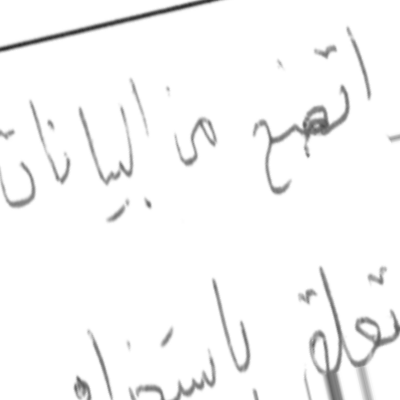 اتضح من البيانات
تعلق باستخدام